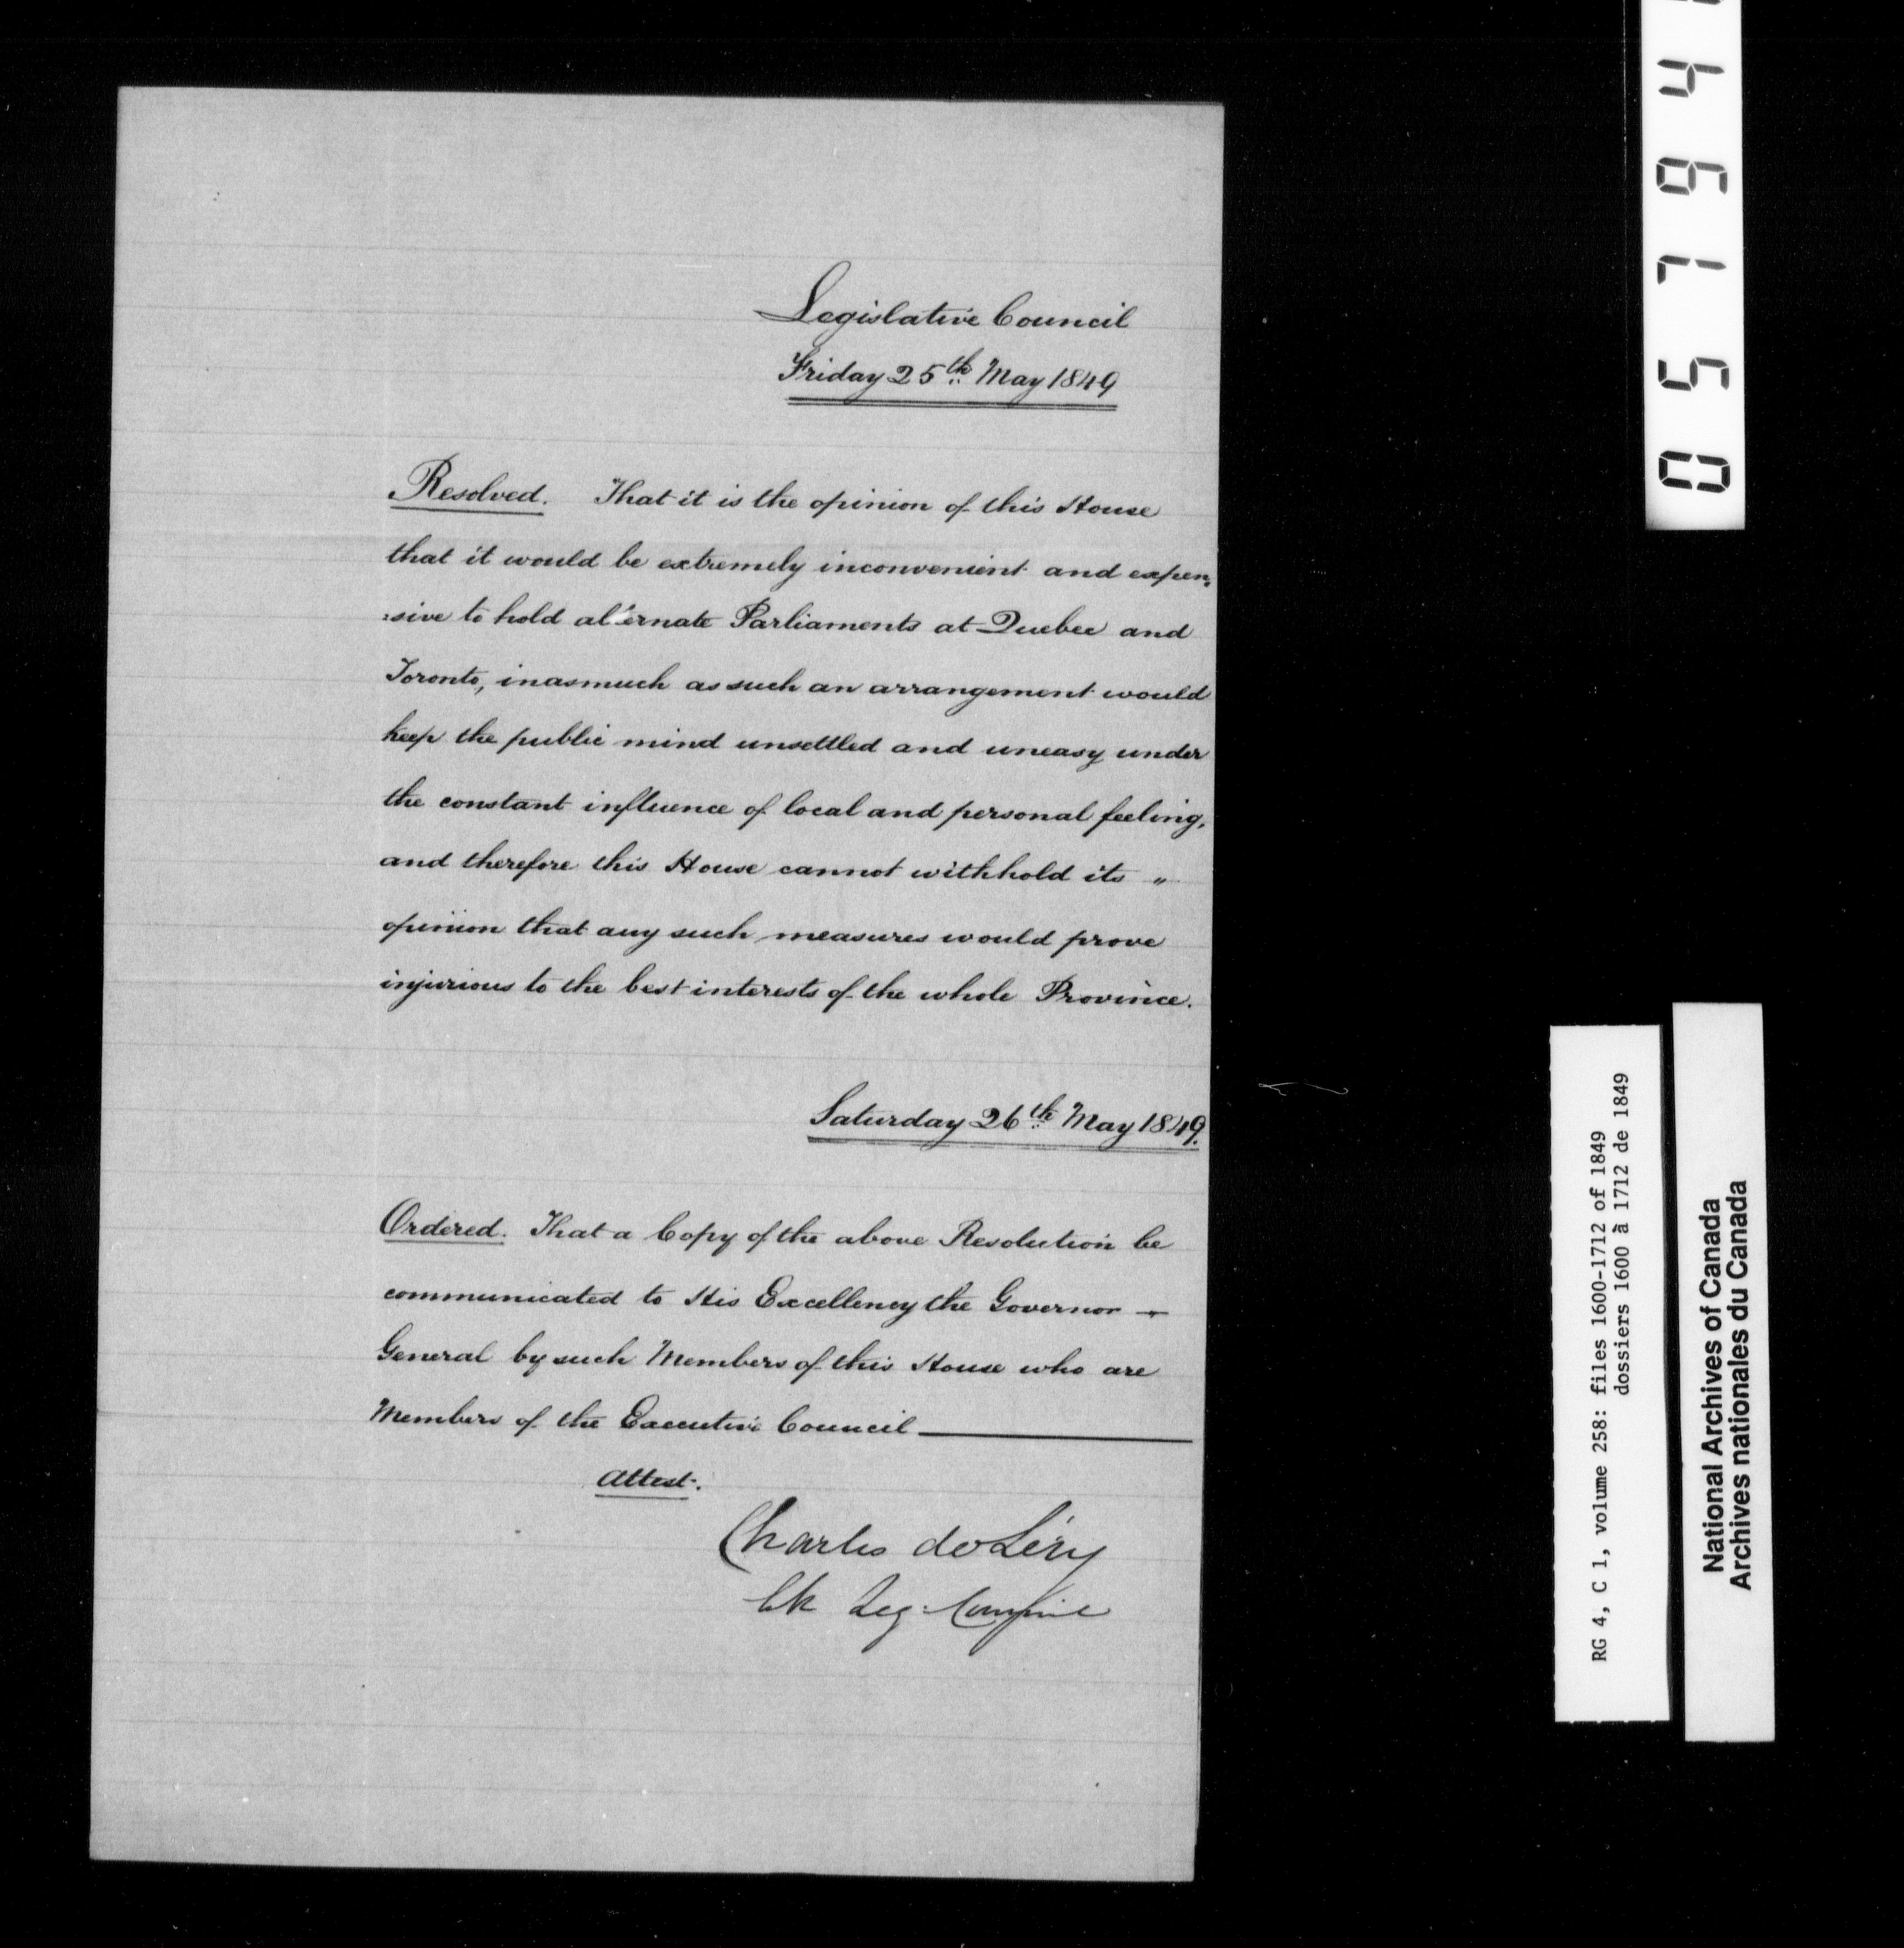 Legislative Council
Friday 25th May 1849
Resolved. That it is the opinion of this House
that it would be extremely inconvenient and expen,
:sive to hold alternate Parliaments at Quebec and
Toronto, inasmuch as such an arrangement would
keep the public mind unsettled and uneasy under
the constant influence of local and personal feeling,
and therefore this House cannot withhold its "
opinion that any such measures would prove
injurious to the best interests of the whole Province.
Saturday 26th May 1849.
Ordered. That a Copy of the above Resolution be
communicated to His Excellency the Governor –
General by such Members of this House who are
Members of the Executive Council
Attest.
Charles de Léry
Clk Leg: Council
05794
RG 4, C 1, volume 258: files 1600-1712 of 1849
dossiers 1600 à 1712 de 1849
National Archives of Canada
Archives nationales du Canada